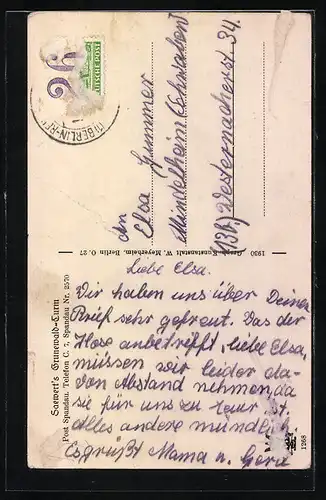 Saewert's Grunewald-Turm
Post Spandau. Telefon C. 7, Spandau Nr. 2570
1930 Graph. Kunstanstalt W. Meyerheim, Berlin O. 27
1268
BERLIN
DEUTSCHE POST
An
Elsa Hummer
Mindelheim (Schwaben)
(13b) Westernacherst. 34.
Liebe Elsa.
Wir haben uns über Deinen
Brief sehr gefreut. Das der
Hose anbetrifft, liebe Elsa,
müssen wir leider da-
von Abstand nehmen, da
sie für uns zu teuer ist.
Alles andere mündlich
Es grüßt Mama u. Gerd